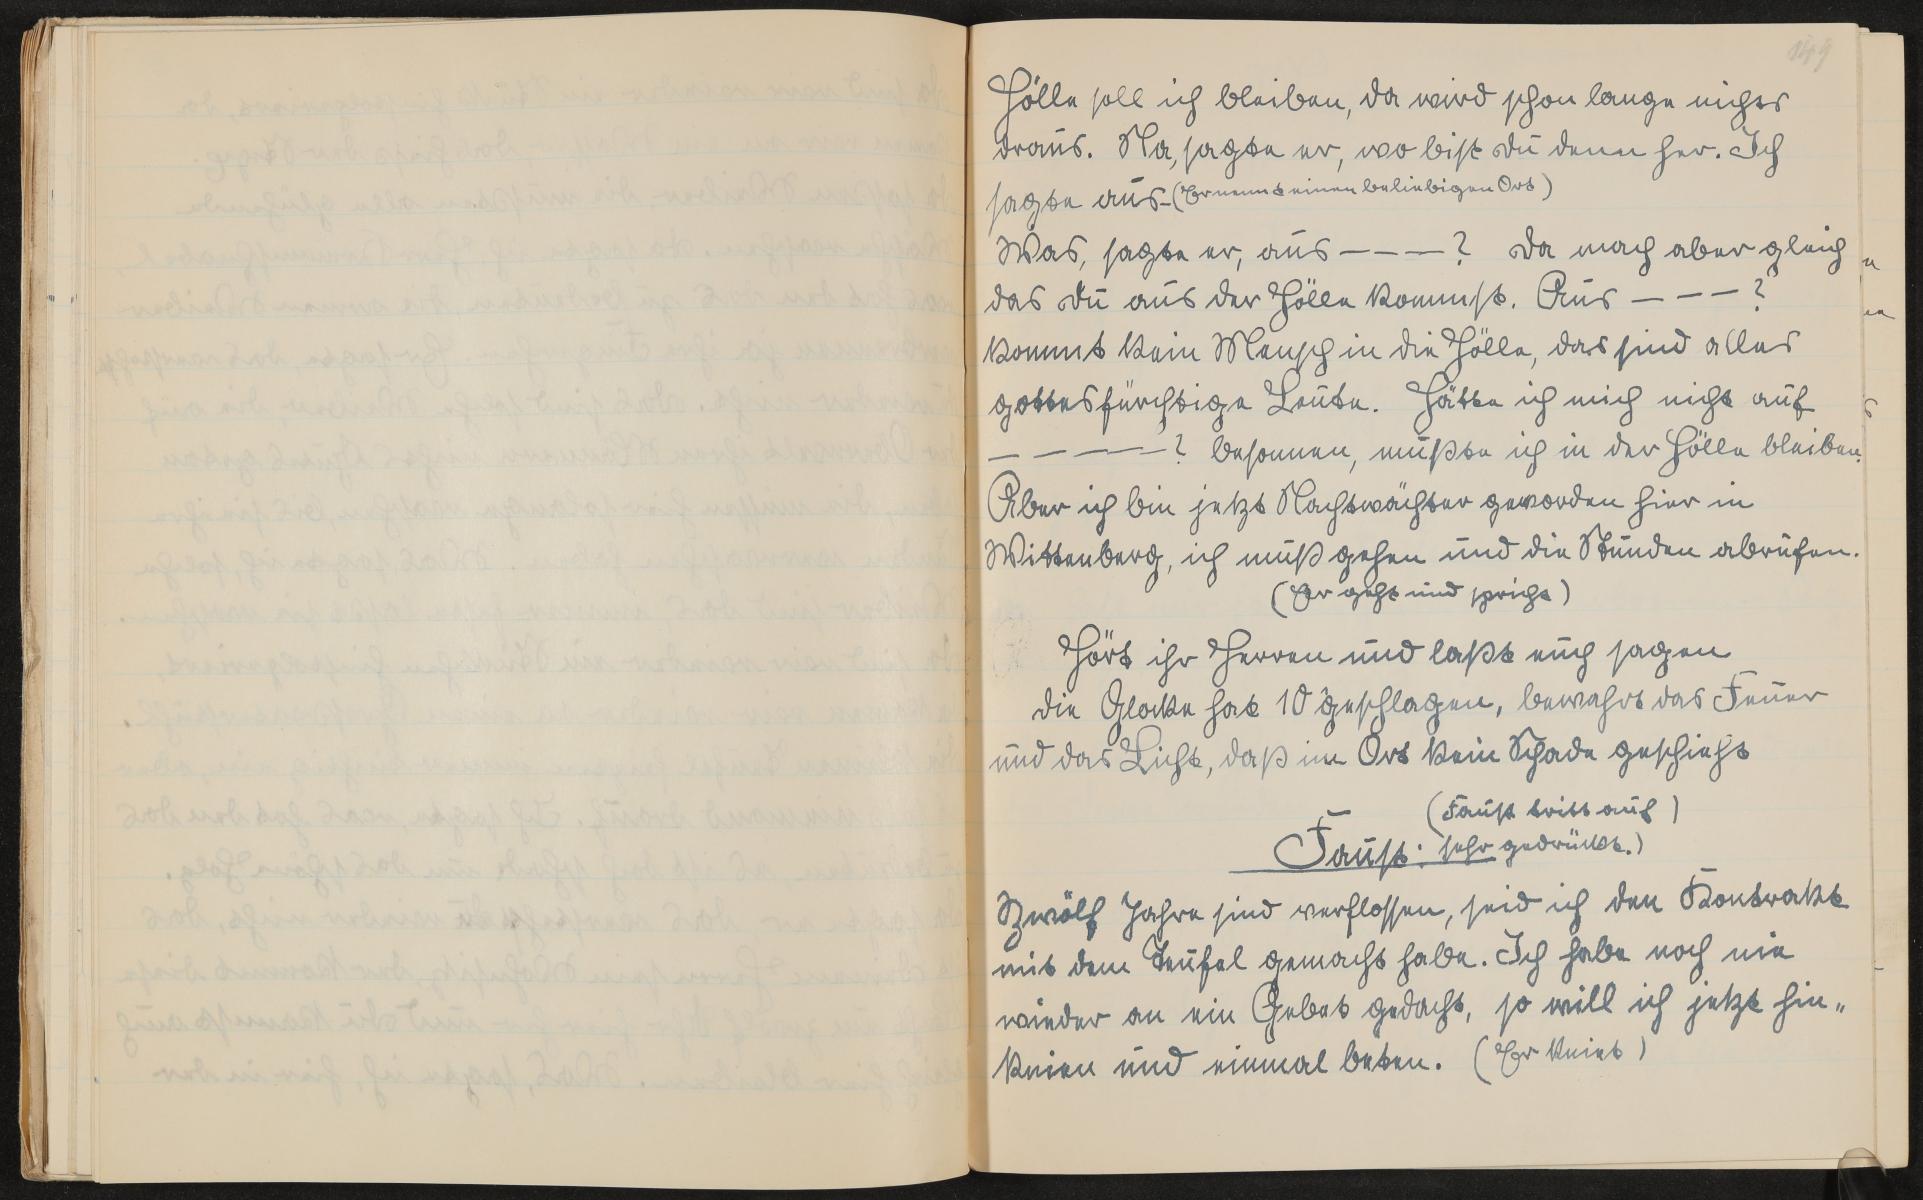 149
Hölle soll ich bleiben, da wird schon lange nichts
draus. Na, sagte er, wo bist du denn her. Ich
sagte aus - (Er nennt einen beliebigen Ort)
Was, sagte er, aus - - - -? Da mach aber gleich
das du aus der Hölle kommst. Aus - - - -?
kommt kein Mensch in die Hölle, das sind alles
gottesfürchtige Leute. Hätte ich mich nicht auf
- - - - -? besonnen, mußte ich in der Hölle bleiben.
Aber ich bin jetzt Nachtwächter geworden hier in
Wittenberg, ich muß gehen und die Stunden abrufen.
(Er geht und spricht)
Hört ihr Herren und laßt euch sagen
die Glocke hat 10 geschlagen, bewahrt das Feuer
und das Licht, daß im Ort kein Schade geschieht
(Faust tritt auf)
Faust: sehr gedrückt.)
Zwölf Jahre sind verflossen, seid ich den Kontrakt
mit dem Teufel gemacht habe. Ich habe noch nie
wieder an ein Gebet gedacht, so will ich jetzt hin„
knien und einmal beten. (Er kniet)